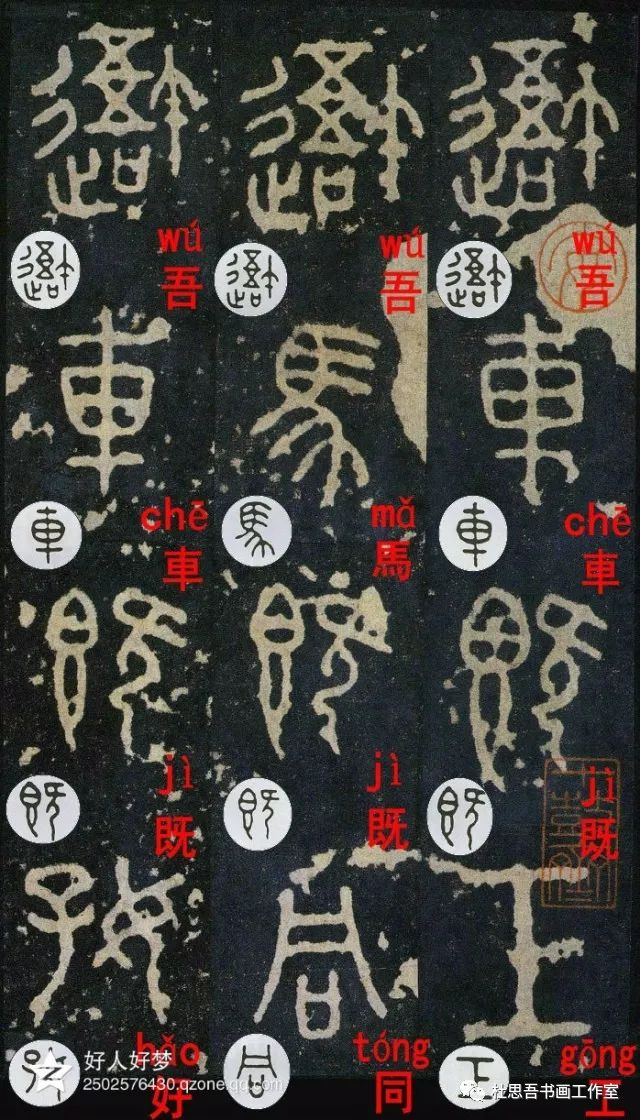 wú
吾
chē
車
jì
既
gōng
工
wú
吾
mǎ
馬
jì
既
tóng
同
wú
吾
chē
車
jì
既
hǎo
好
好人好梦
2502576430.qzone.qq.com
杜思吾书画工作室